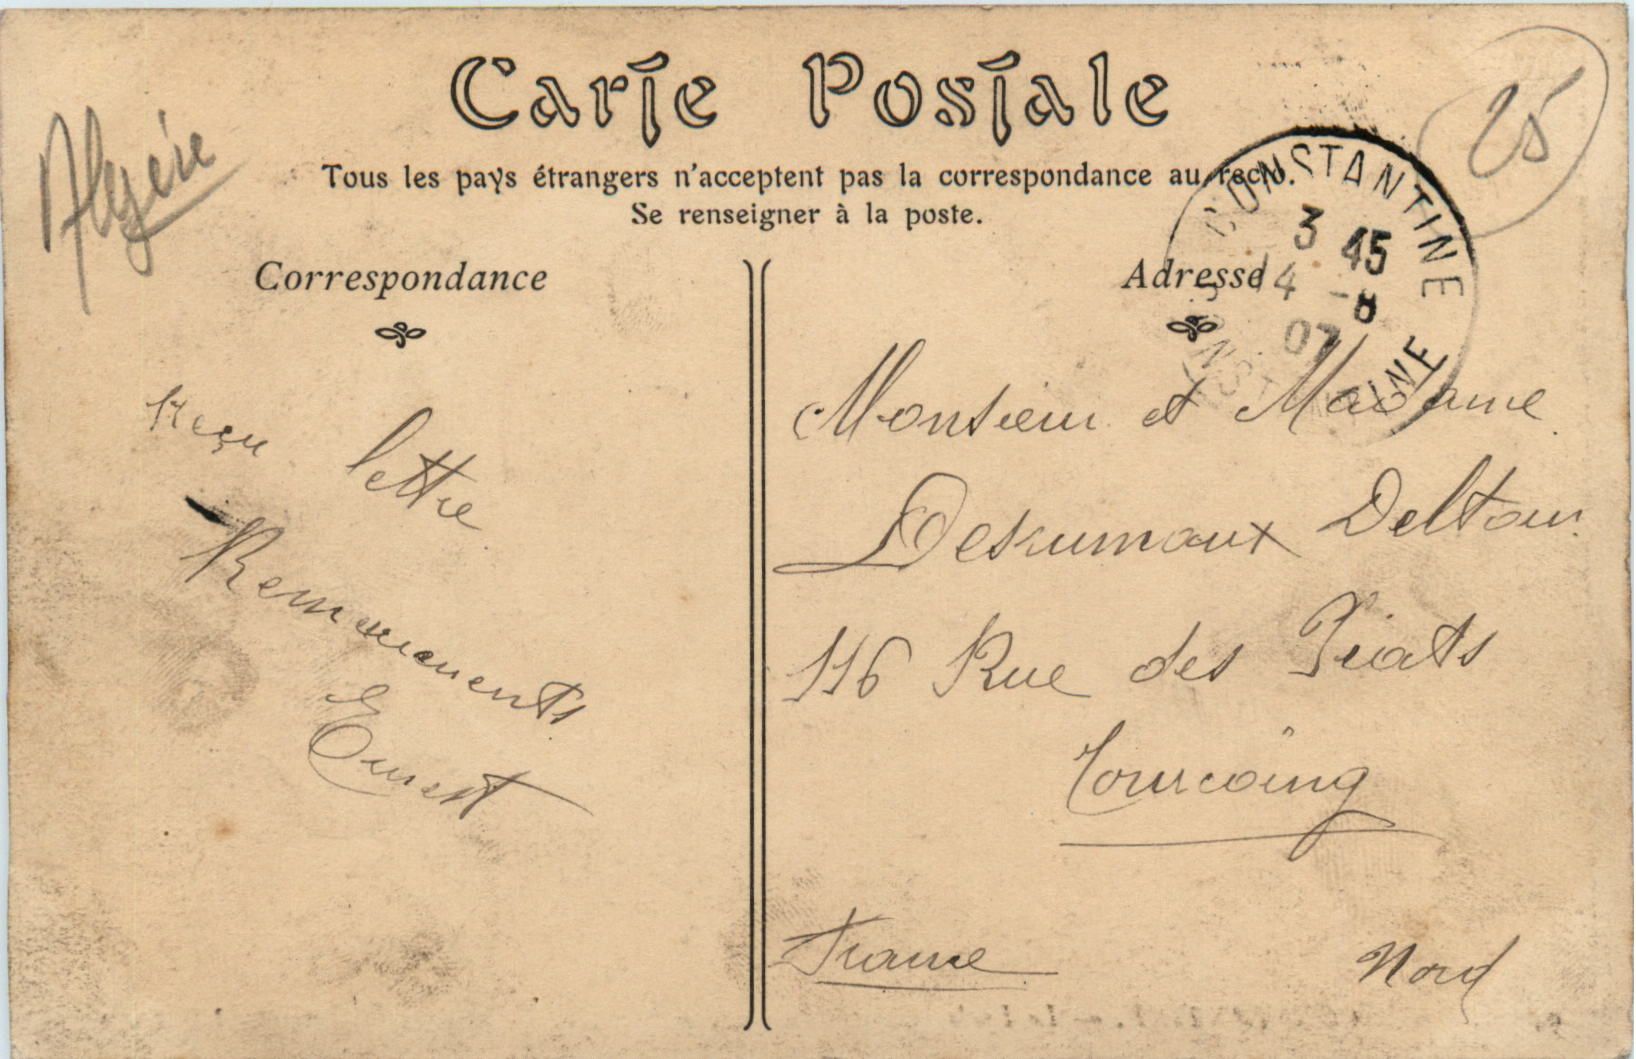 Carte Postale
Tous les pays étrangers n'acceptent pas la correspondance au recto.
Se renseigner à la poste.
Algérie
25
CONSTANTINE
3 45
14 -8
07
CONSTANTINE
Correspondance
Reçu lettre
Remerciements
Ernest
Adresse
Monsieur et Madame
Desrumaux Deltour
116 Rue des Piats
Tourcoing
France Nord